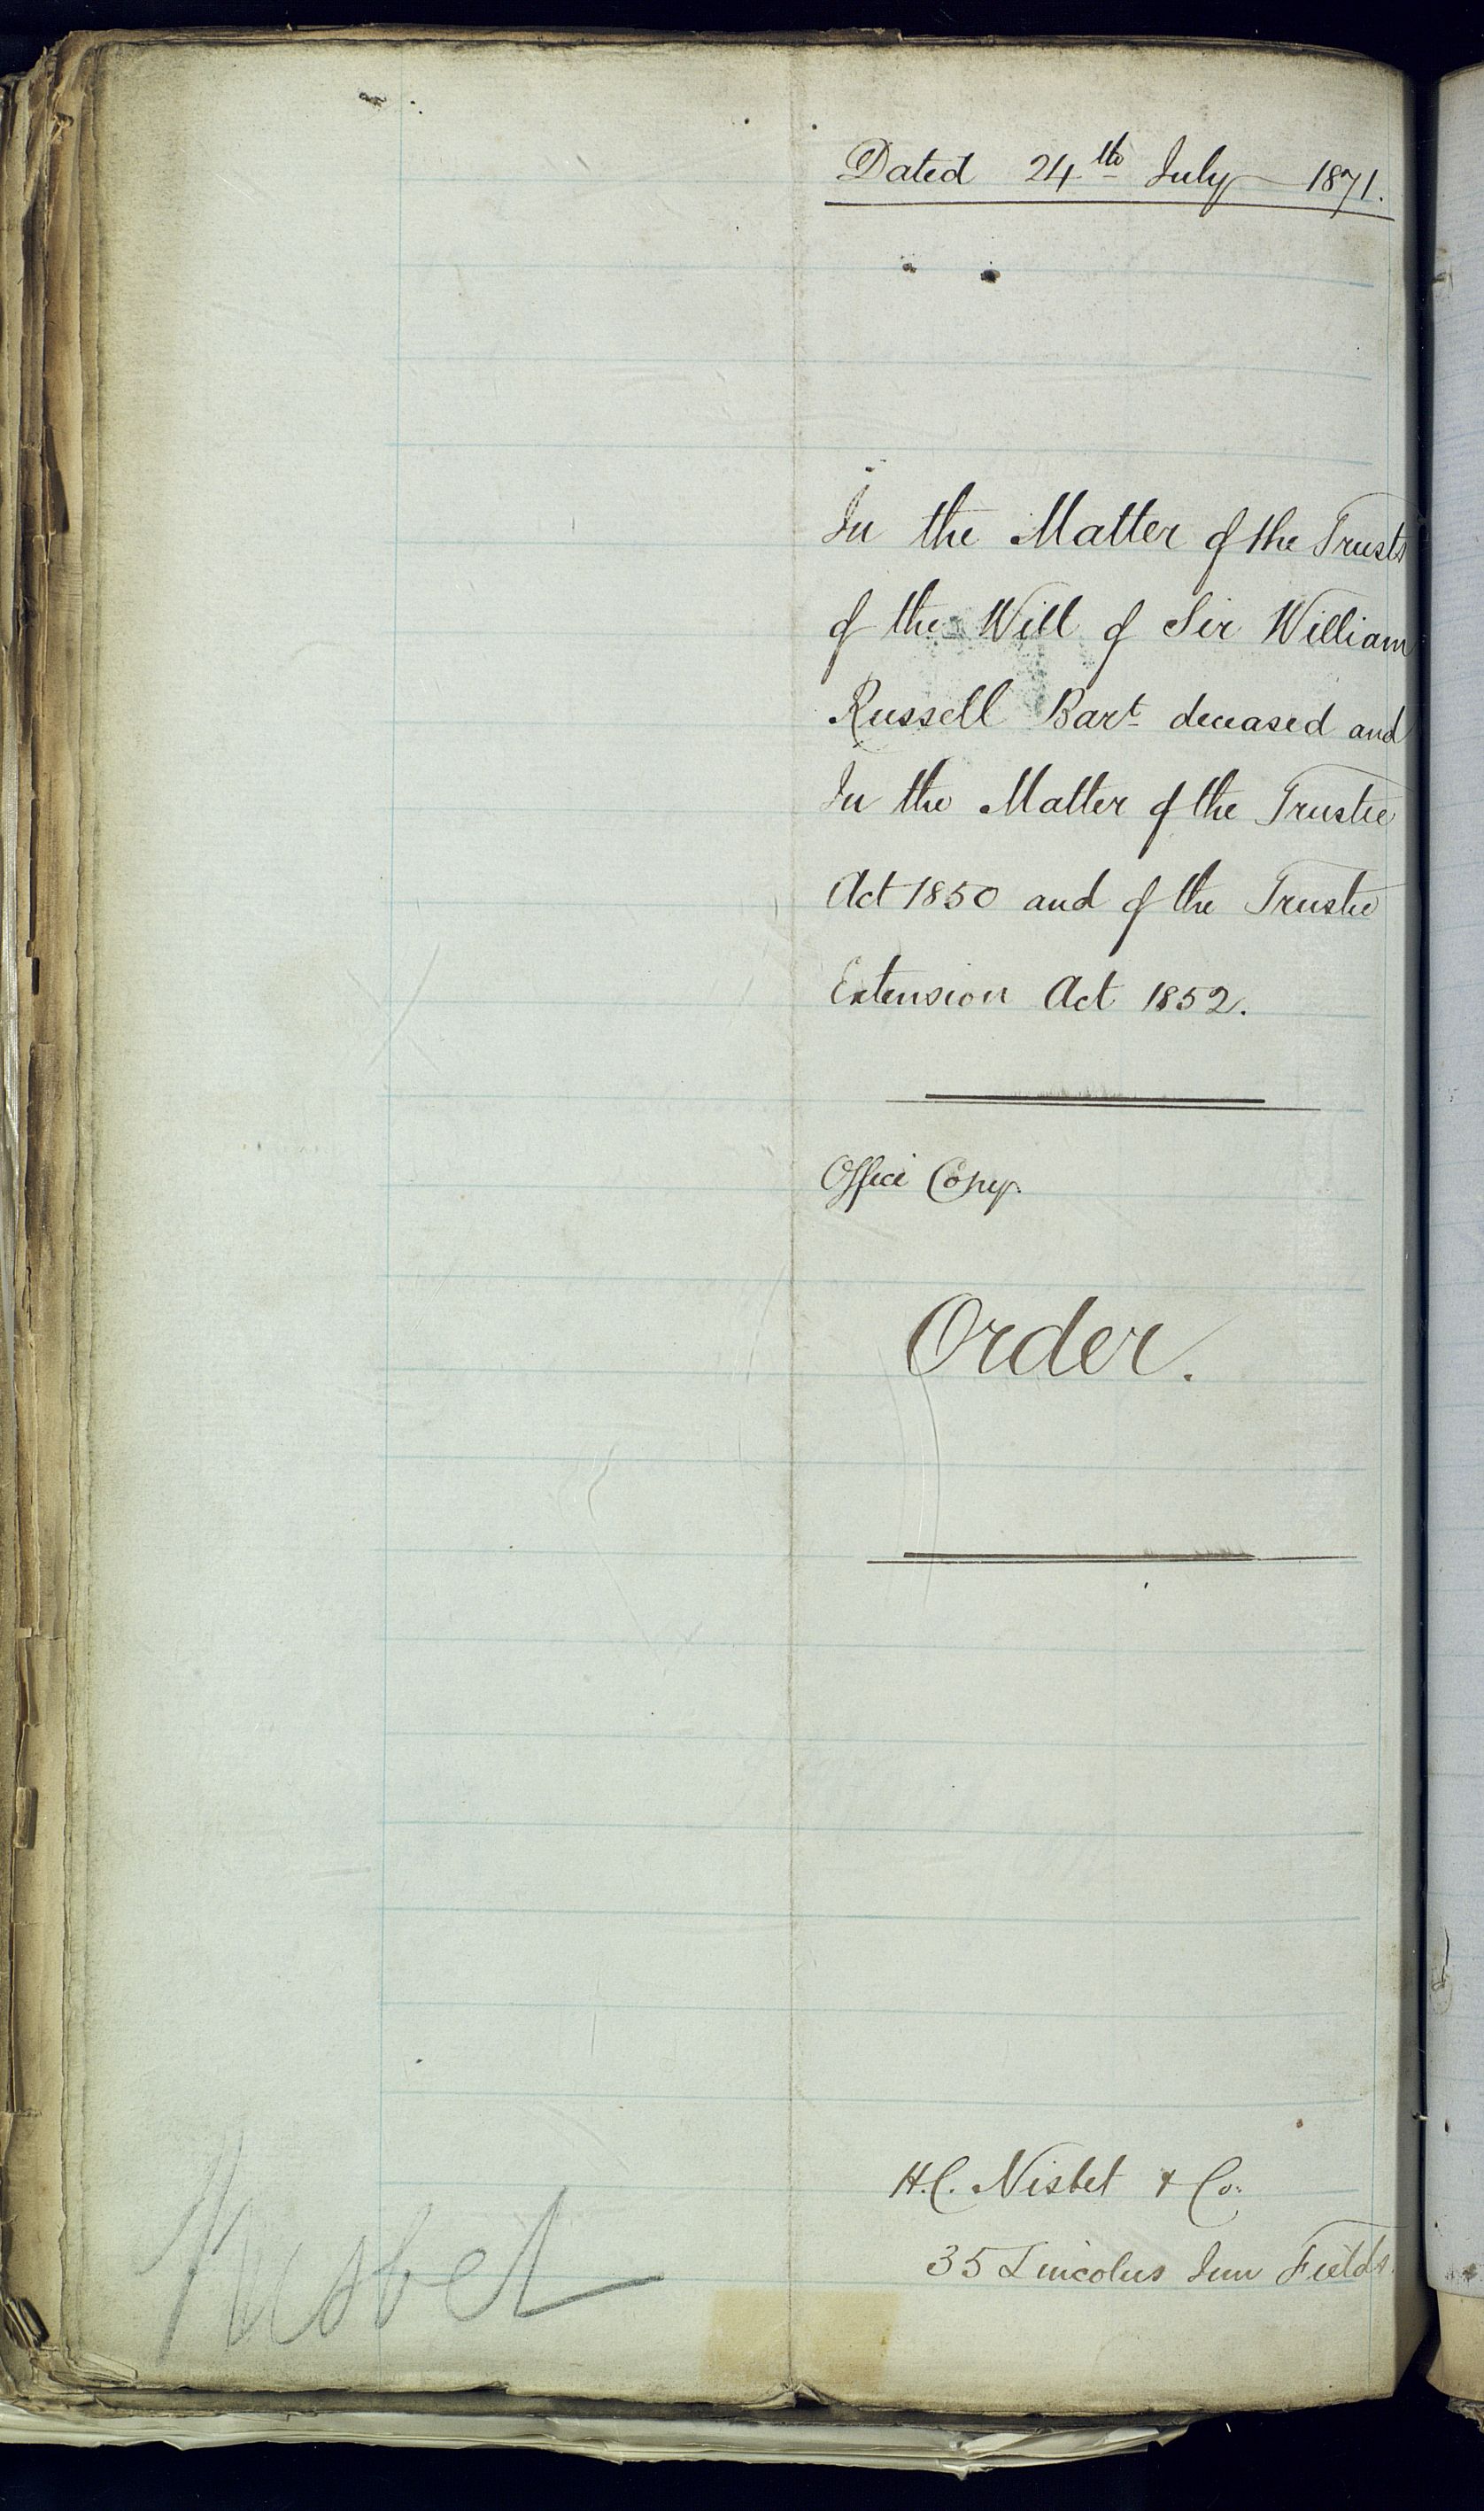 Dated 24th July 1871.
In the Matter of the Trusts
of the Will of Sir William
Russell Bart deceased and
In the Matter of the Trustee
Act 1850 and of the Trustee
Extension Act 1852.
Office Copy.
Order.
H.C. Nisbet & Co.
35 Lincolns Inn Fields.
Nisbet